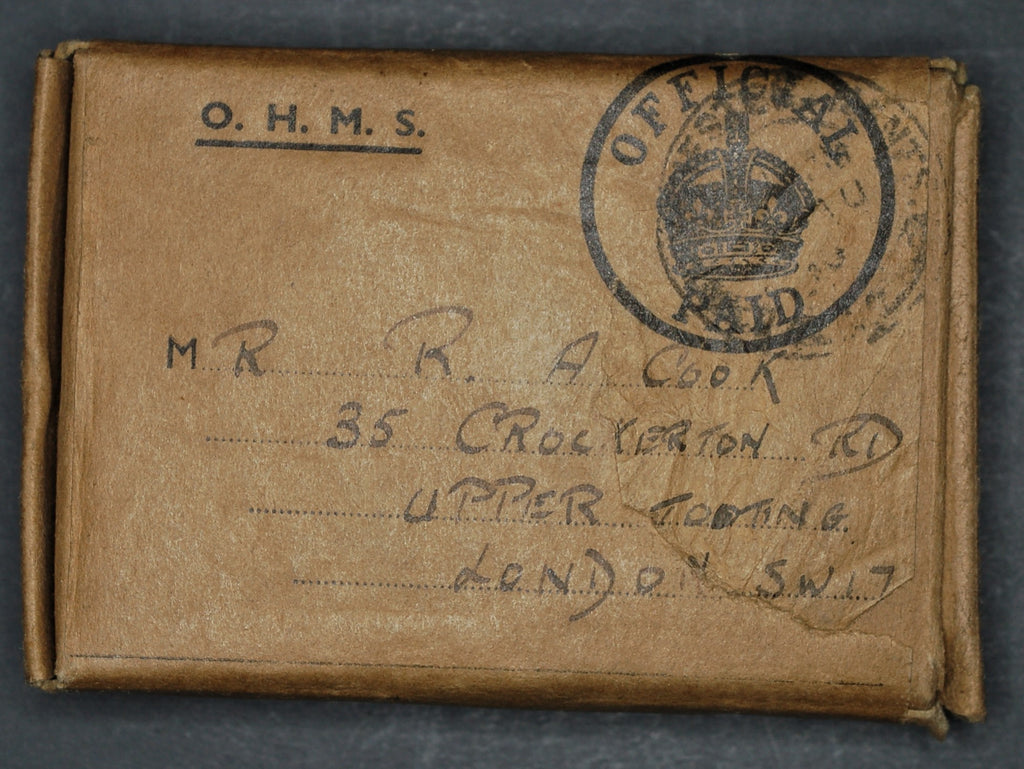 O. H. M. S.
OFFICIAL
PAID
MR R. A COOK
35 CROCKERTON RD
UPPER TOOTING
LONDON SW17